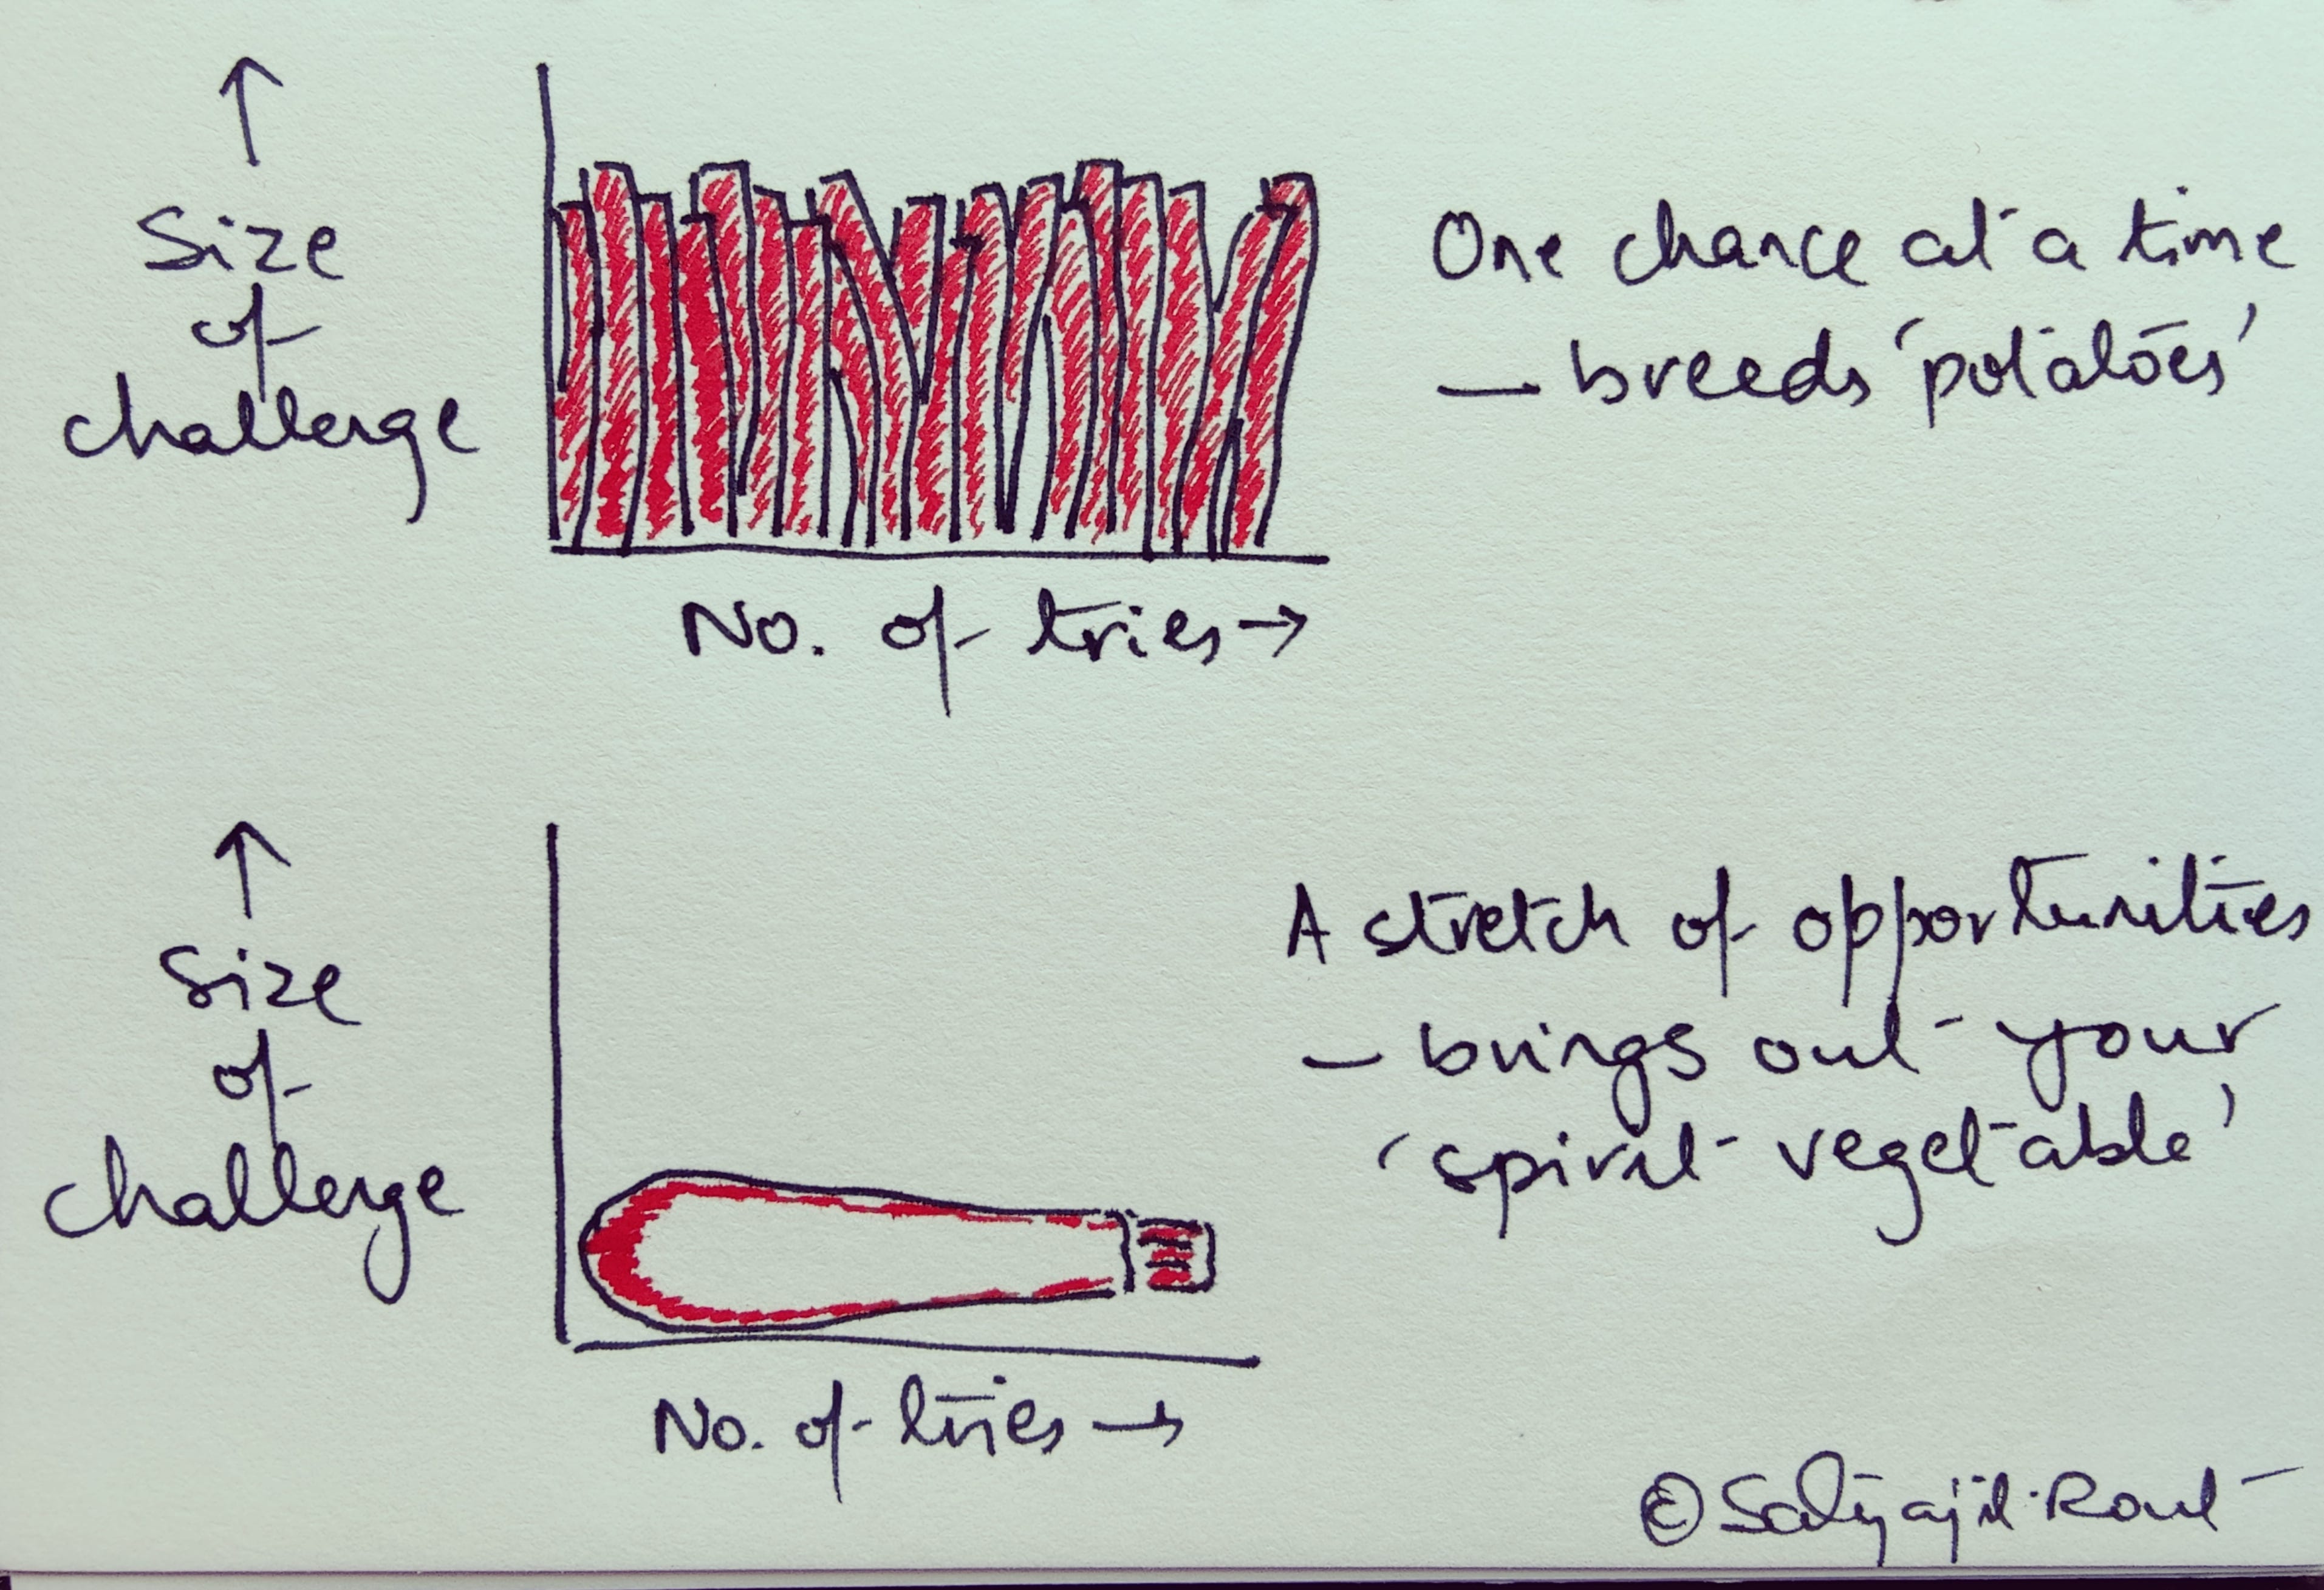 ↑
Size
of
challenge
No. of tries →
One chance at a time
— breeds 'potatoes'
↑
Size
of
challenge
No. of tries →
A stretch of opportunities
— brings out your
'spirit vegetable'
© Satyajit Rout